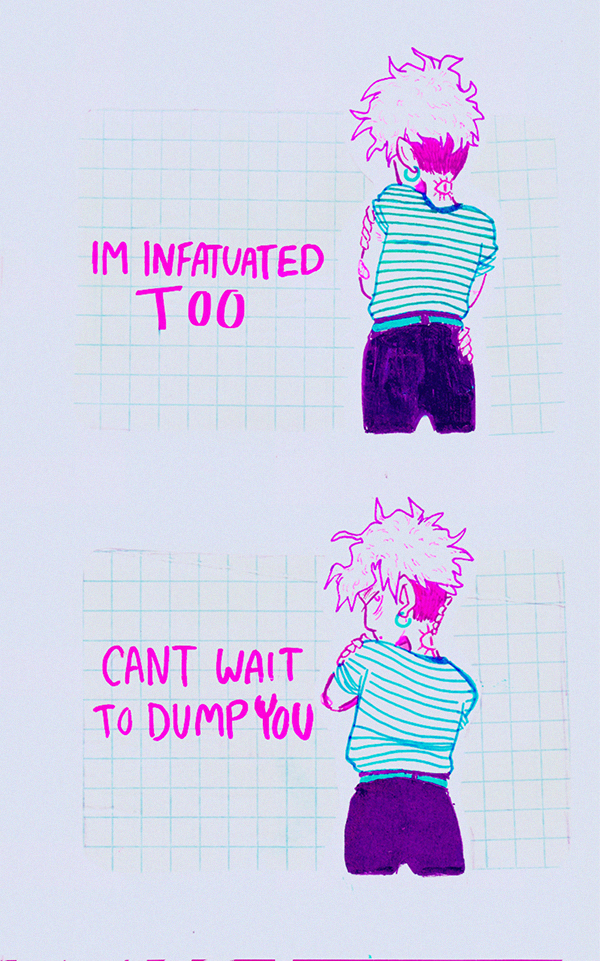 IM INFATUATED
TOO
CANT WAIT
TO DUMP YOU